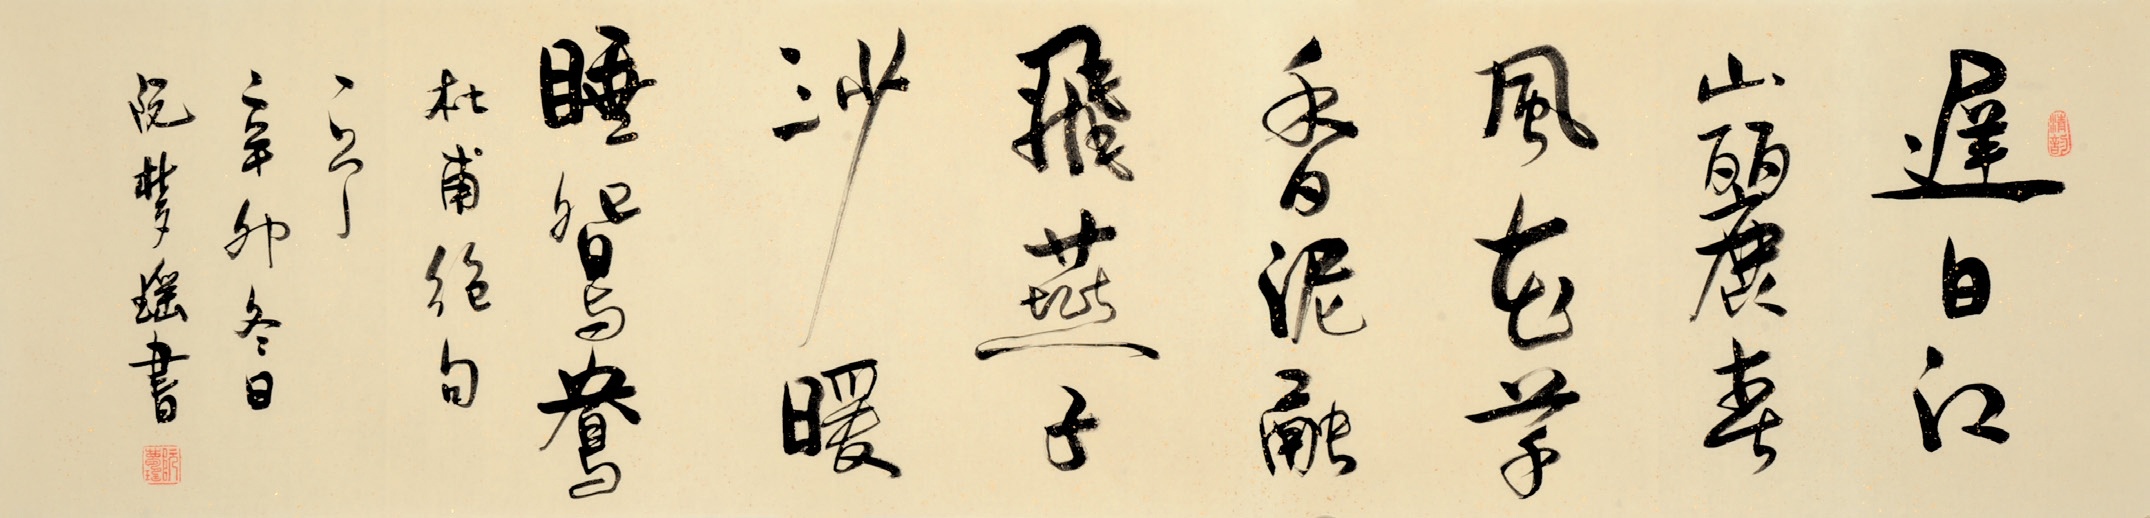 遲日江
山麗春
風花草
香泥融
飛燕子
沙暖
睡鴛鴦
杜甫絶句
一首
辛卯冬日
阮梦瑶書